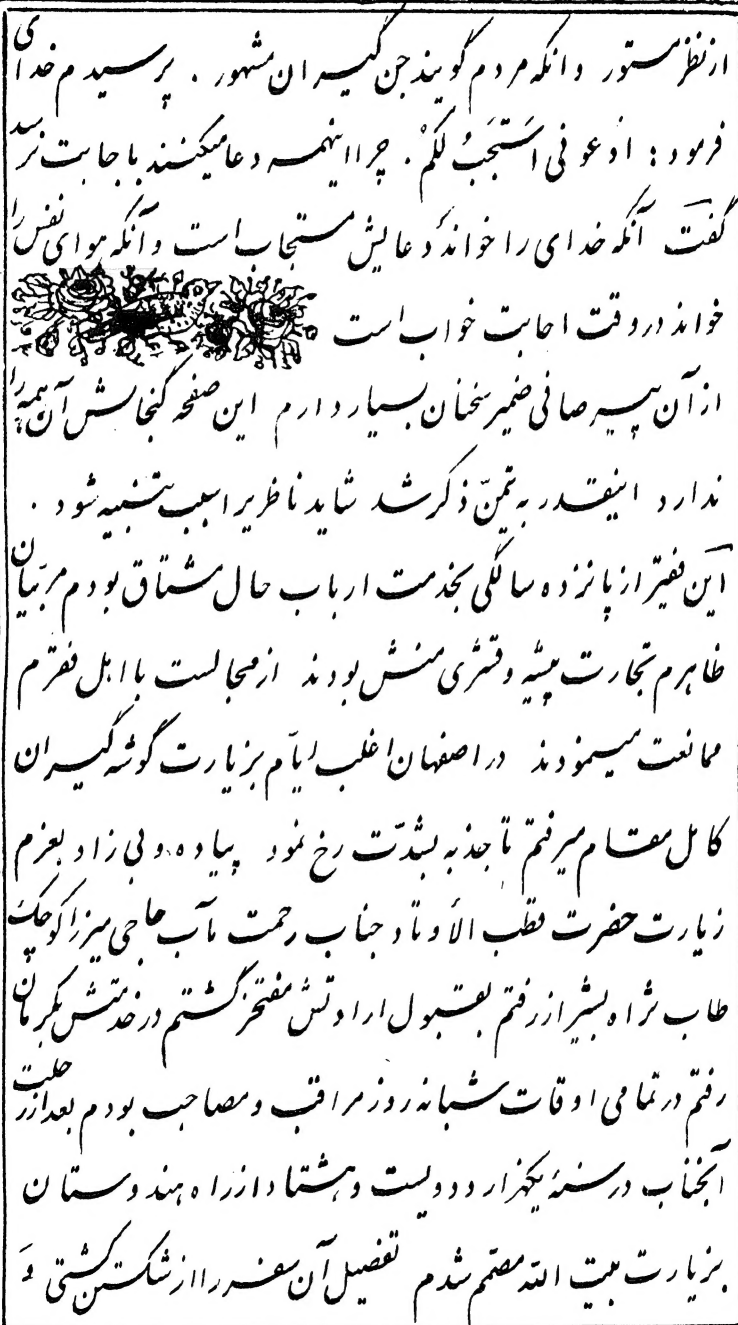 از نظر مستور و انکه مردم گویند جن گیران مشهور . پرسیدم خدای
فرمود : اُدعونی اَستَجِبُ لَکُمْ . چرا اینهمه دعا میکنند باجابت نرسد
گفت آنکه خدای را خواند دعایش مستجاب است و آنکه هوای نفس را
خواند در وقت اجابت خواب است
از آن پیر صافی ضمیر سخنان بسیار دارم این صفحه گنجایش آن همه را
ندارد اینقدر به تیمّن ذکر شد شاید ناظر یرا سبب تنبیه شود .
این فقیر از پانزده سالگی بخدمت ارباب حال مشتاق بودم مربّیان
ظاهرم تجارت پیشه و قشری منش بودند از مجالست با اهل فقرم
ممانعت مینمودند در اصفهان اغلب ایّام بزیارت گوشه گیران
کامل مقام میرفتم تا جذبه بشدّت رخ نمود پیاده و بی زاد بعزم
زیارت حضرت قطب الأوتاد جناب رحمت مآب حاجی میرزا کوچک
طاب ثراه بشیراز رفتم بقبول ارادتش مفتخر گشتم در خدمتش بکرمان
رفتم در تمامی اوقات شبانه روز مراقب و مصاحب بودم بعد از رحلت
آنجناب در سنهٔ یکهزار و دویست و هشتاد از راه هندوستان
بزیارت بیت الله مصمّم شدم تفصیل آن سفر را از شکستن کشتی وَ